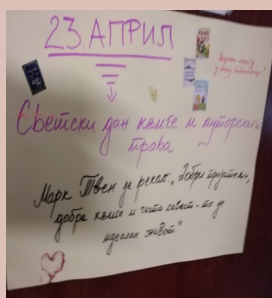 23. АПРИЛ
Светски дан књиге и ауторских
права
Марк Твен је рекао „Добри пријатељи,
добре књиге и чиста савест - то је
идеалан живот"